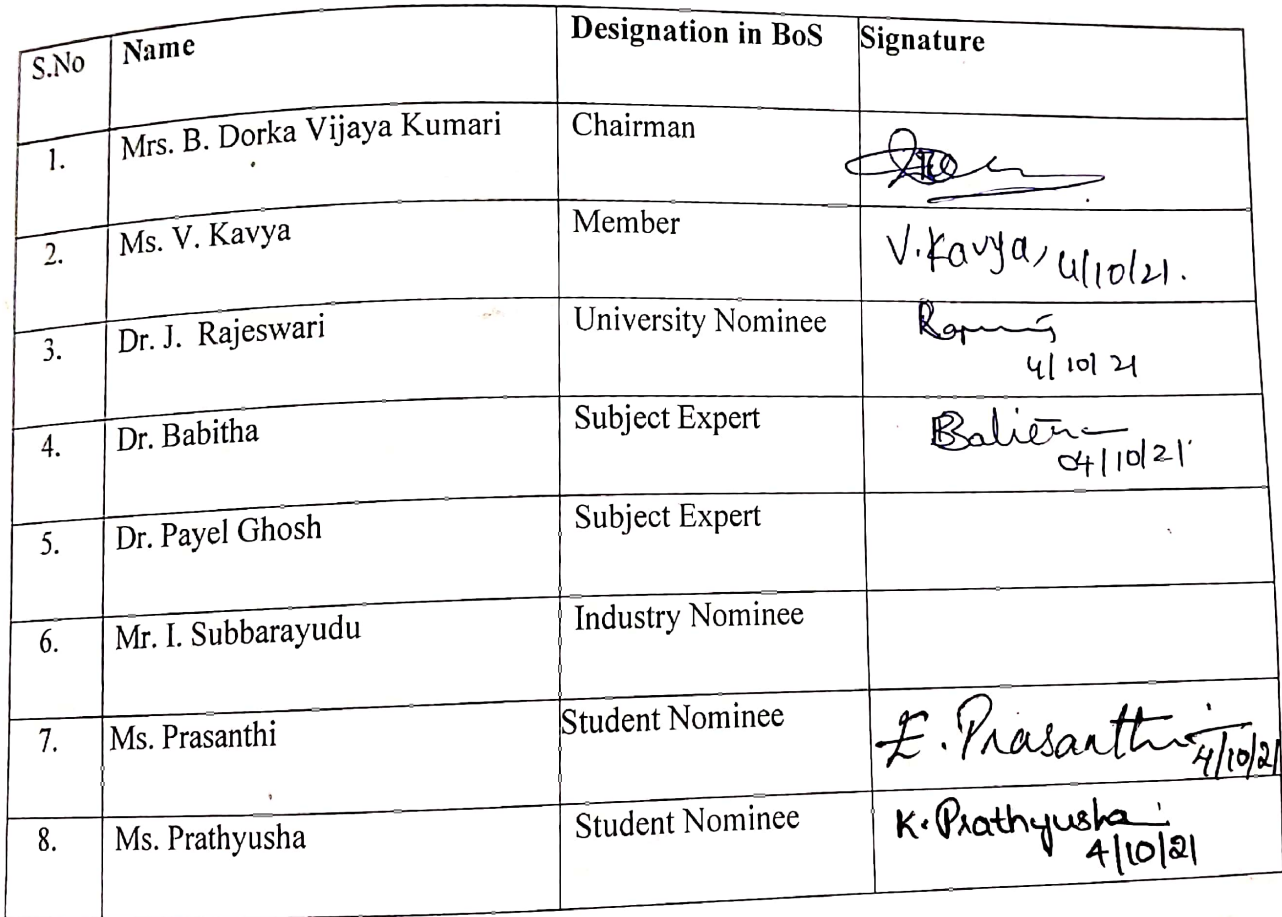 S.No Name Designation in BoS Signature
1. Mrs. B. Dorka Vijaya Kumari Chairman
2. Ms. V. Kavya Member V. Kavya, 4/10/21.
3. Dr. J. Rajeswari University Nominee
4/10/21
4. Dr. Babitha Subject Expert
04/10/21
5. Dr. Payel Ghosh Subject Expert
6. Mr. I. Subbarayudu Industry Nominee
7. Ms. Prasanthi Student Nominee E. Prasanthi
4/10/21
8. Ms. Prathyusha Student Nominee K. Prathyusha
4/10/21